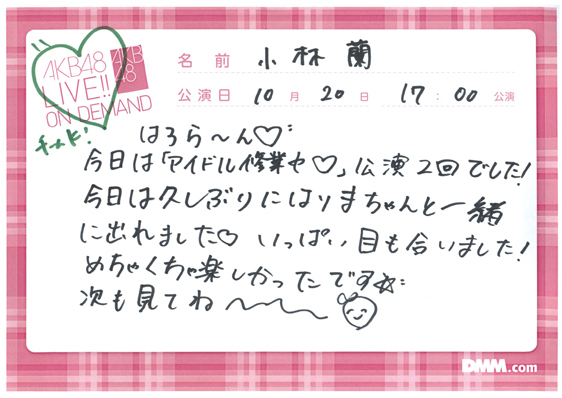 AKB48
LIVE!!
ON DEMAND
AKB
48
名前 小林蘭
公演日 10月 20日 17:00 公演
チームK!
はろら〜ん♡
今日は「アイドル修業中♡」公演2回でした!
今日は久しぶりにはりまちゃんと一緒
に出れました♡ いっぱい目も合いました!
めちゃくちゃ楽しかったです☆
次も見てね〜〜〜
DMM.com